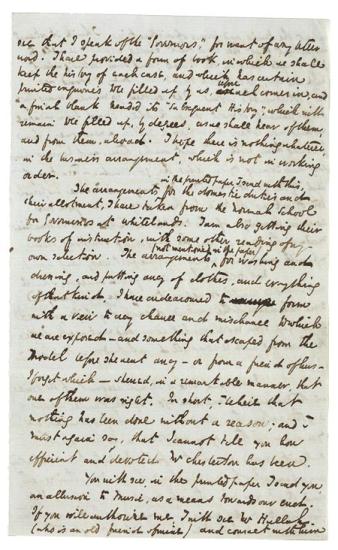 see that I speak of the "Governors," for want of any better
word. I have provided a form of book, in which we shall
keep the history of each case, and which has certain
printed inquiries to be filled up by us, when each comes in, and
a final blank headed its "Subsequent History", which will
remain to be filled up, by degrees, as we shall hear of them,
and from them, abroad. I hope there is nothing whatever,
in the business arrangement, which is not in working
order.
in the printed paper I send with this,
The arrangements for the domestic duties and
their allotment, I have taken from the Normal School
for Governesses at Whitelands. I am also getting their
books of instruction, with some other reading of my
own selection. The arrangements, for washing and
(not mentioned in the paper)
dressing, and putting away of clothes, and everything
of that kind, I have endeavoured to form
with a view to every chance and mischance to which
we are exposed—and something that escaped from the
Model before she went away—or from a friend of hers—
I forget which—shewed, in a remarkable manner, that
one of them was right. In short, I believe that
nothing has been done without a reason; and I
must again say, that I cannot tell you how
efficient and devoted Mr Chesterton has been.
You will see in the printed paper I send you
an allusion to Music, as a means towards our end.
If you will authorize me, I will see Mr Hullah
(who is an old friend of mine) and consult with him